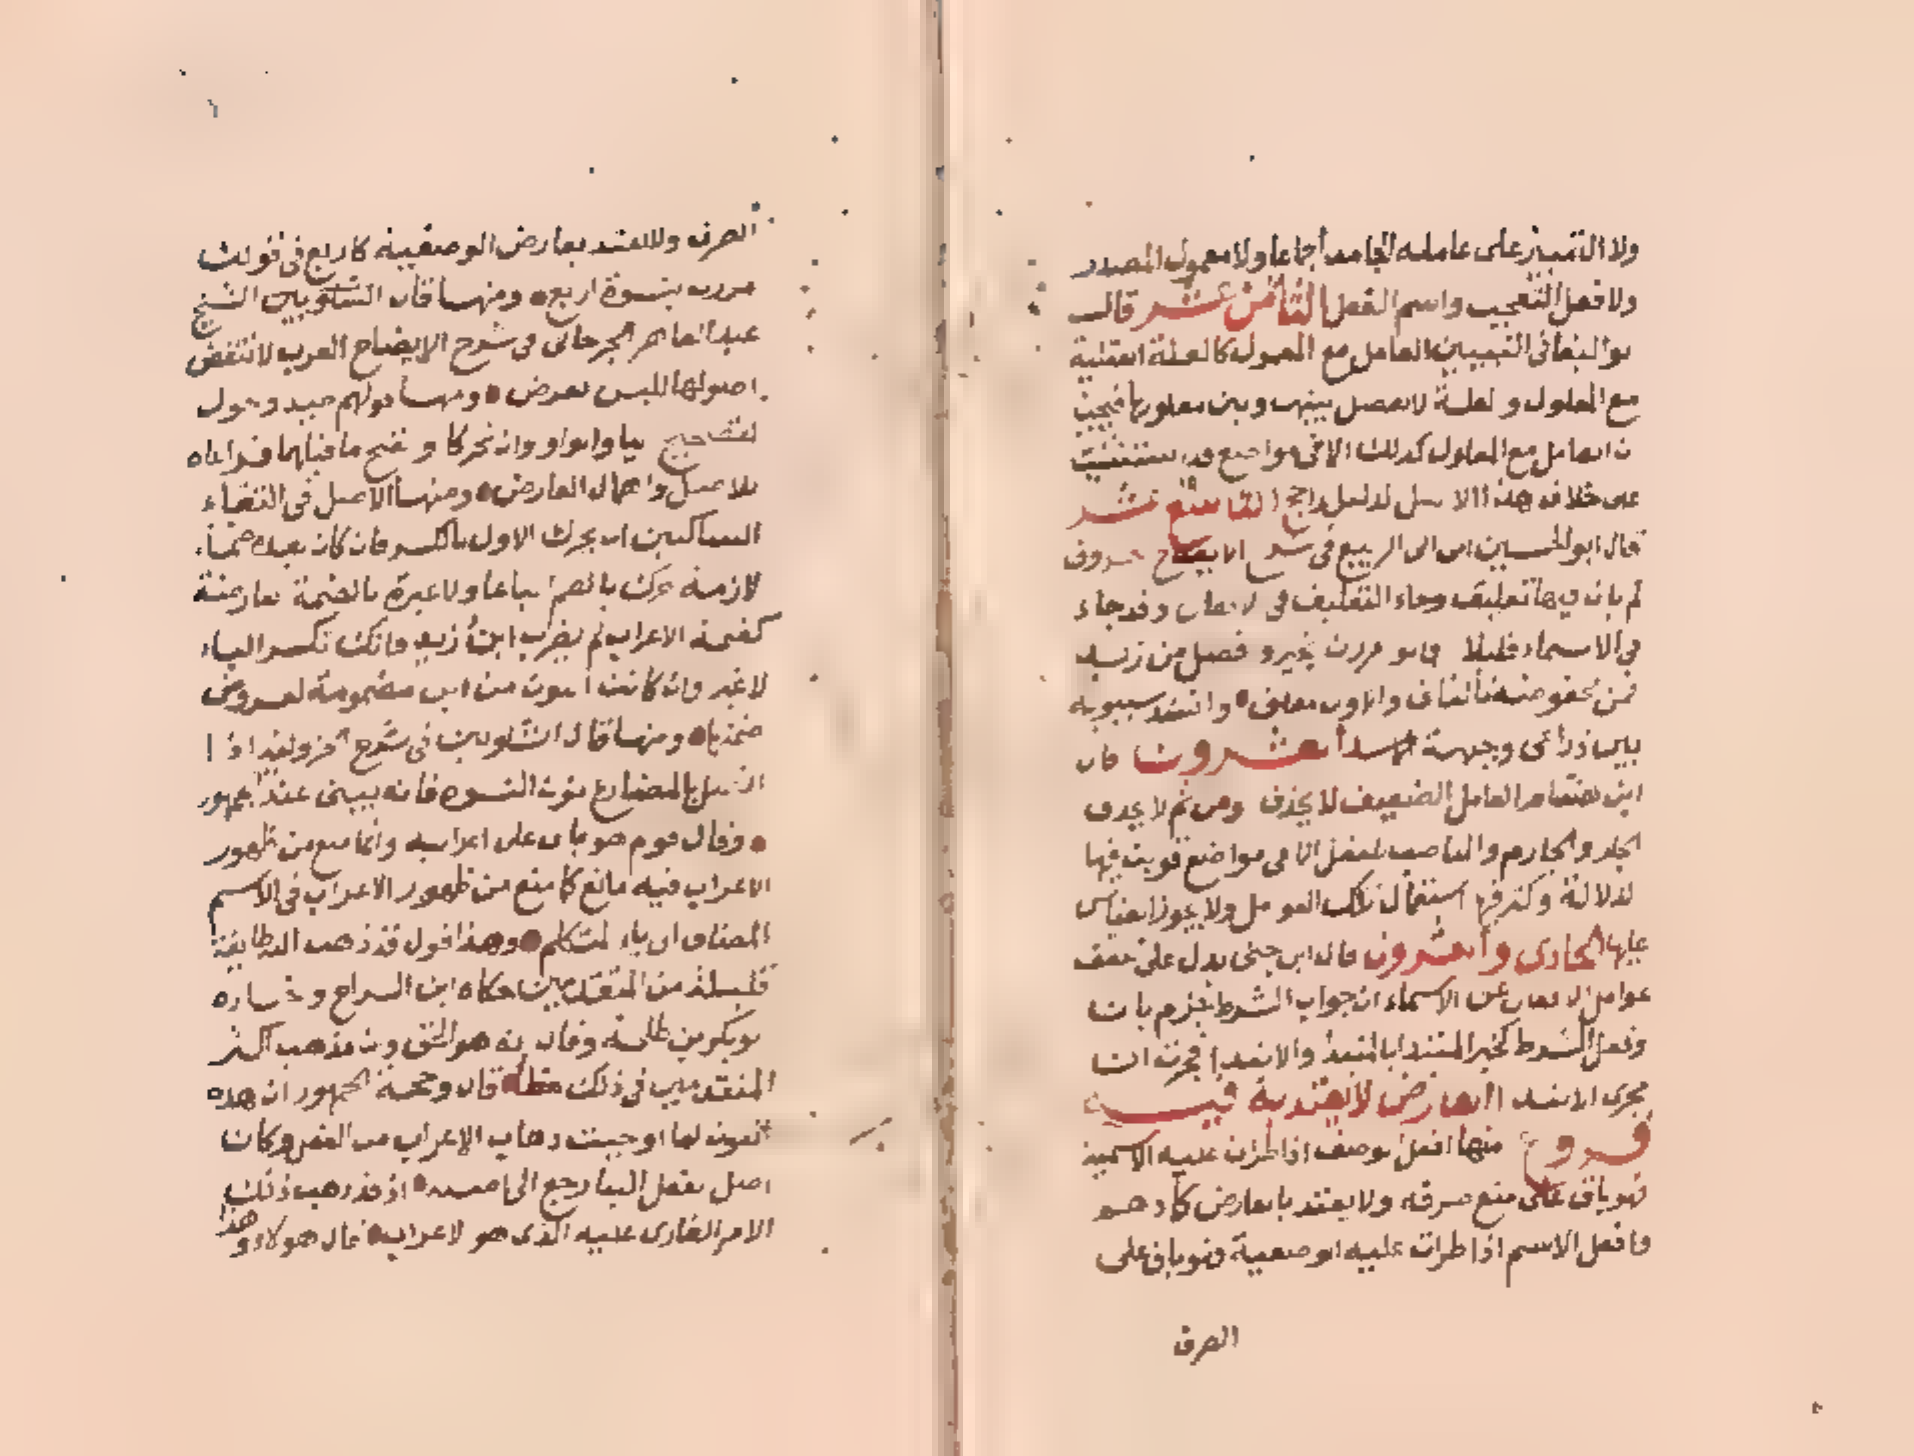 ولا التمييز على عامله الجامد أجماعا ولا معمول المصدر
ولا فعل التعجب واسم الفعل الثامن عشر قال
ابو البقا فى التبيين العامل مع المعمول كالعلة العقلية
مع المعلول والعلة لا يفصل بينها وبين معلولها فيجب
ان العامل مع المعلول كذلك الا فى مواضع قد
على خلاف هذا الاصل لدليل راجح التاسع عشر
قال ابو الحسين ابن ابى الربيع فى شرح الايضاح حروف
لم يات فيها تعليق وجاء التعليق فى الافعال وقد جاء
فى الاسماء قليلا قالو مررت بخير وفضل من زيد
فمن مخفوضة بالثانى والاول معلق وانشد سيبويه
بين ذراعى وجبهة الاسد العشرون قال
ابن عصفور العامل الضعيف لا يحذف ومن ثم لا يحذف
الجار والجازم والناصب للفعل الا فى مواضع قويت فيها
الدلالة وكثر فيها استعمال تلك العوامل ولا يجوز القياس
عليها الحادى والعشرون قال ابن جنى يدل على ضعف
عوامل الافعال عن الاسماء ان جواب الشرط جزم بان
وفعل الشرط كخبر المبتدا بالمبتدأ والابتدا فجرت ان
مجرى الابتدا العارض لا يعتد به فيه
فروع منها افعل بوصف اذا طرات عليه الاسمية
فهو باق على منع صرفه ولا يعتد بالعارض كادهم
وافعل الاسم اذا طرات عليه الوصفية فهو باق على
الصرف
الصرف ولا يعتد بعارض الوصفية كاربع فى قولك
مررت بنسوة اربع ومنها قال الشلوبين الشيخ
عبد القاهر الجرجانى فى شرح الايضاح العرب لا تنقض
اصولها للبس يعرض ومنها قولهم صيد وحول
بتصحيح اليا والواو وان تحركا وانفتح ما قبلهما مراعاه
للاصل واهمال العارض ومنها الاصل فى التقاء
الساكنين ان يحرك الاول بالكسر فان كان بعيده ضمة
لازمة حرك بالضم اتباعا ولا عبرة بالضمة العارضة
كضمة الاعراب لم يضرب ابن زيد فانك تكسر الباء
لا غير وان كانت النون من ابن مضمومة لعروض
ضمتها ومنها قال الشلوبين فى شرح الجزولية اذا
اتصل بالمضارع نون النسوه فانه يبنى عند الجمهور
وقال قوم هو باق على اعرابه وانما منع من ظهور
الاعراب فيه مانع كما منع من ظهور الاعراب فى الاسم
المضاف الى ياء المتكلم وهذا قول قد ذهب اليه طايفة
قليلة من المتقدمين حكاه ابن السراج واختاره
ابو بكر بن طلحة وقال انه هو الحق وان مذهب اكثر
المتقدمين فى ذلك خطأ قال وحجة الجمهور ان هذه
النون لما اوجبت ذهاب الاعراب من الفعل وكان
اصل الفعل البنا رجع الى اصله اذ قد ذهب ذلك
الامر الطارى عليه الذى هو الاعراب قال هولاء وهذا